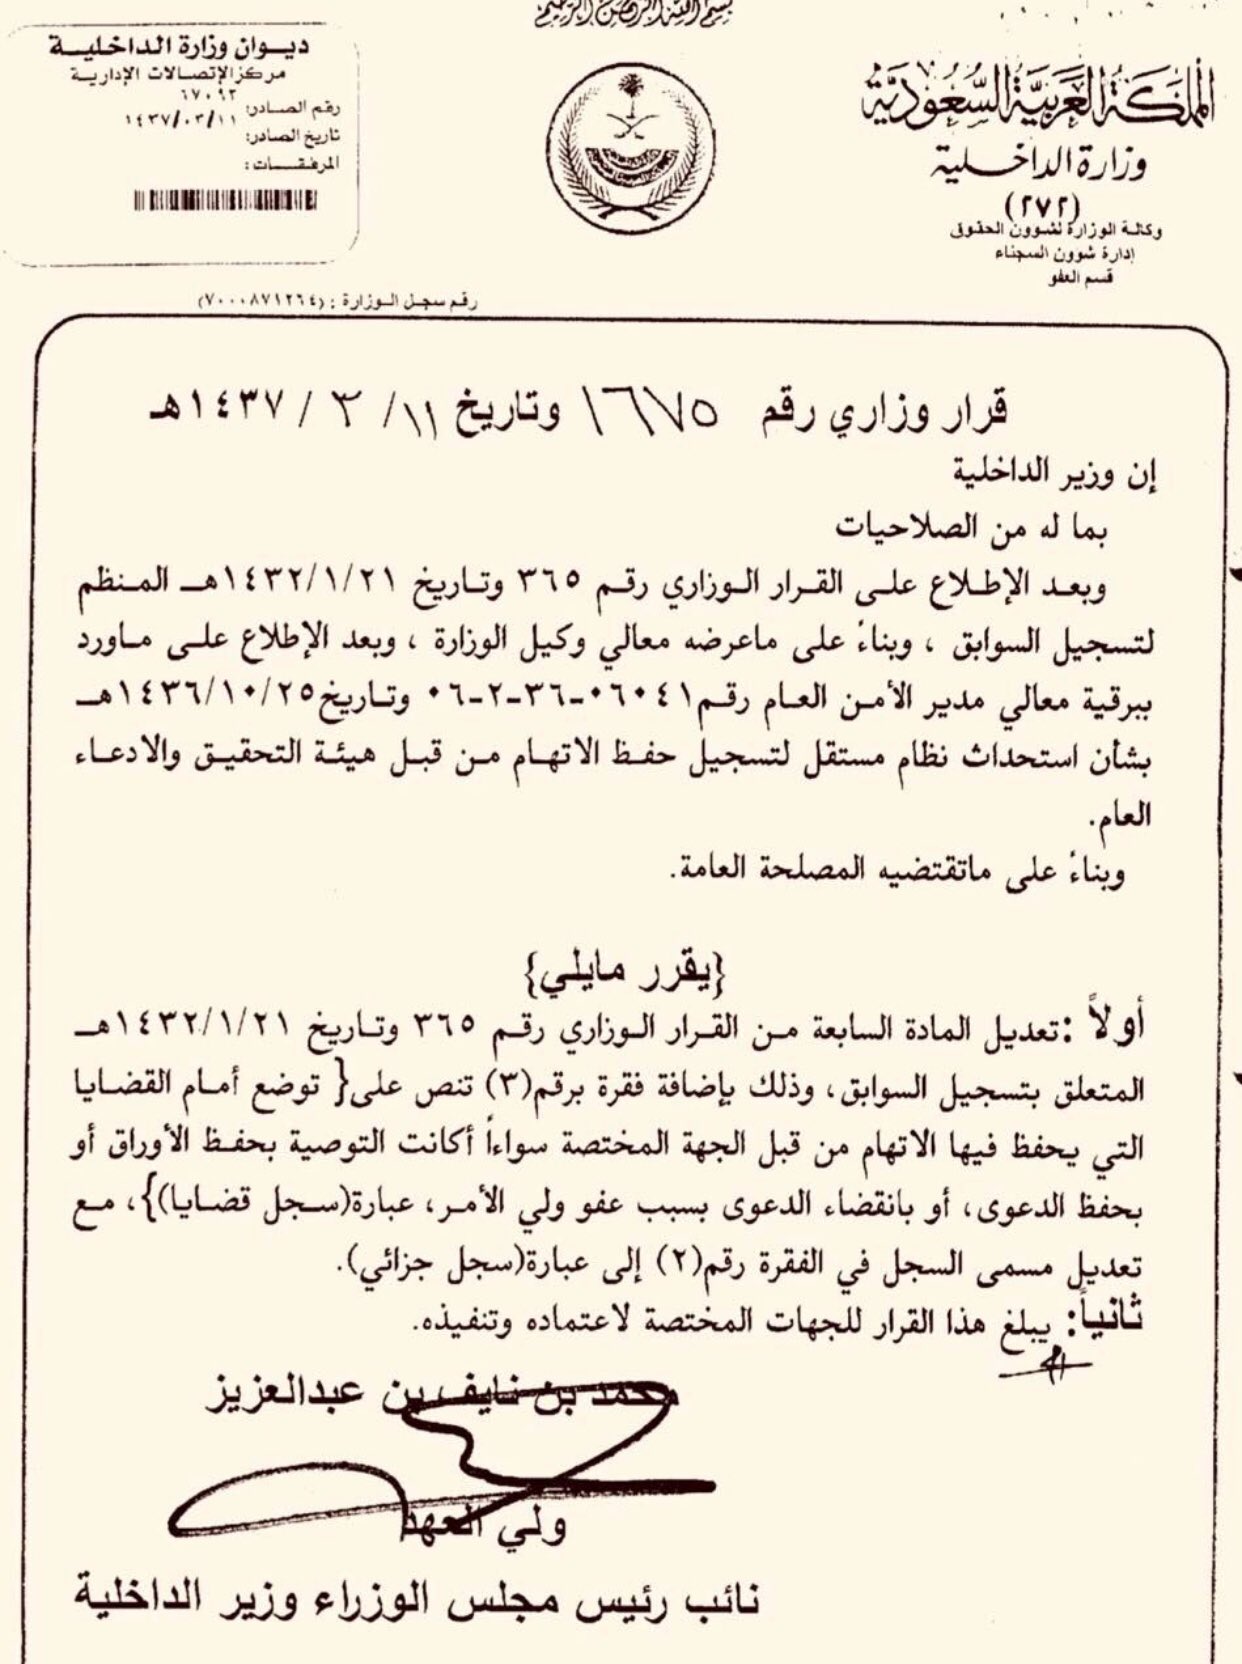 بسم الله الرحمن الرحيم
المملكة العربية السعودية
وزارة الداخلية
(٢٧٢)
وكالة الوزارة لشوون الحقوق
إدارة شوون السجناء
قسم العفو
ديوان وزارة الداخلية
مركز الإتصالات الإدارية
رقم الصادر: ٦٧٠٩٢
تاريخ الصادر: ١٤٣٧/٠٣/١١
المرفقات:
رقم سجل الوزارة : (٧٠٠٠٨٧١٢٦٤)
قرار وزاري رقم ١٦١٧٥ وتاريخ ١١/ ٣ / ١٤٣٧هـ
إن وزير الداخلية
بما له من الصلاحيات
وبعد الإطلاع على القرار الوزاري رقم ٣٦٥ وتاريخ ١٤٣٢/١/٢١هـ المنظم
لتسجيل السوابق ، وبناءً على ماعرضه معالي وكيل الوزارة ، وبعد الإطلاع على ماورد
ببرقية معالي مدير الأمن العام رقم٠٦٠٤١-٣٦-٢-٠٦ وتاريخ١٤٣٦/١٠/٢٥هـ
بشأن استحداث نظام مستقل لتسجيل حفظ الاتهام من قبل هيئة التحقيق والادعاء
العام.
وبناءً على ماتقتضيه المصلحة العامة.
{يقرر مايلي}
أولاً :تعديل المادة السابعة من القرار الوزاري رقم ٣٦٥ وتاريخ ١٤٣٢/١/٢١هـ
المتعلق بتسجيل السوابق، وذلك بإضافة فقرة برقم(٣) تنص على{ توضع أمام القضايا
التي يحفظ فيها الاتهام من قبل الجهة المختصة سواءاً أكانت التوصية بحفظ الأوراق أو
بحفظ الدعوى، أو بانقضاء الدعوى بسبب عفو ولي الأمر، عبارة(سجل قضايا)}، مع
تعديل مسمى السجل في الفقرة رقم(٢) إلى عبارة(سجل جزائي).
ثانياً: يبلغ هذا القرار للجهات المختصة لاعتماده وتنفيذه.
محمد بن نايف بن عبدالعزيز
ولي العهد
نائب رئيس مجلس الوزراء وزير الداخلية